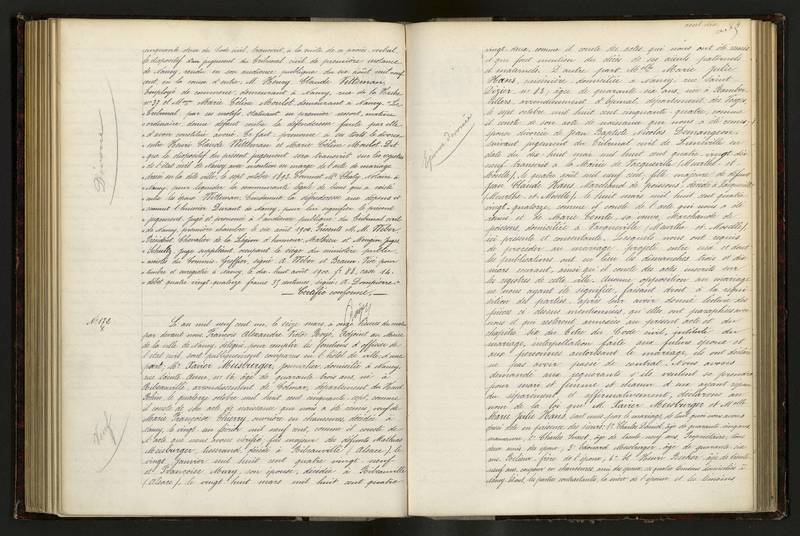 cinquante deux du Code civil, transcrit, à la suite de ce procès verbal,
le dispositif d'un jugement du tribunal civil de première instance
de Nancy, rendu en son audience publique du six août mil neuf
cent, en la cause d'entre: M. Henry Claude Welteman
Employé de commerce, demeurant à Nancy, rue de la
n° 37 et Mme Marie Céline Moulot, demeurant à Nancy. Le
Tribunal par ces motifs statuant en premier ressort, matière
ordinaire, donne défaut contre la défenderesse faute par elle
d'avoir constitué avoué. Ce fait, prononce à ses torts le divorce
entre Henri Claude Welteman et Marie Céline Moulot. Dit
que le dispositif du présent jugement sera transcrit sur les registres
de l'état civil de Nancy avec mention en marge de l'acte de mariage
dressé en la dite ville, le sept octobre 1893. Commet Me notaire à
Nancy pour liquider la communauté légale de biens qui a existé
entre les époux Welteman. Condamne la défenderesse aux dépens et
commet l'huissier de Nancy, pour lui signifier le présent
jugement. Jugé et prononcé à l'audience publique du tribunal civil
de Nancy, première chambre le six août 1900. Présents M. M. Weber
Président, Chevalier de la Légion d'honneur, Mathieu et Mougin juges
juge suppléant occupant le siège du ministère public
assistés du Commis Greffier. signé: A. Weber et Braun. Visé pour
timbre et enregistré à Nancy, le dix huit août 1900. f° 88, case 14.
débet quatre vingt quatorze francs 35 centimes. signé: A. Dompierre.
Certifié conforme.
Divorce
N° 172
L'an mil neuf cent un, le seize mars, à onze heures du matin
par devant nous, François Alexandre Victor Boys, Adjoint au Maire
de la ville de Nancy, délégué, pour remplir les fonctions d'officier de
l'état civil, sont publiquement comparus en l'hôtel de ville, d'une
part: Mr Xavier Meusburger, journalier, domicilié à Nancy,
rue Sainte Anne, n° 16, âgé de quarante trois ans, né à
Ribeauvillé, arrondissement de Colmar, département du Haut
Rhin, le quatorze octobre mil huit cent cinquante sept, comme
il conste de son acte de naissance, à nous a été remis, veuf de
Marie Françoise Thierry, ouvrière en chaussures, décédée à
Nancy, le vingt un février mil neuf cent, comme il conste de
l'acte que nous avons vérifié, fils majeur des défunts Mathias
Meusburger, tisserand, décédé à Ribeauvillé (Alsace), le
vingt janvier mil huit cent quatre vingt neuf
et Françoise Mary, son épouse, décédée à Ribeauvillé
(Alsace), le vingt huit mars mil huit cent quatre
Veuf
vingt deux, comme il conste des actes qui nous ont été remis
et qui font mention du décès de ses aïeuls paternels
et maternels. D'autre part, Melle Marie Julie
Hans, cuisinière, domiciliée à Nancy, rue Saint
Dizier, n° 83, âgée de quarante six ans, née à Rambervillers,
arrondissement d'Epinal, département des Vosges,
le sept octobre mil huit cent cinquante quatre, comme
il conste de son acte de naissance que nous a été remis,
épouse divorcée de Jean Baptiste Nicolas Demangeon,
suivant jugement du tribunal civil de Lunéville en
date du dix huit mai mil huit cent quatre vingt dix
neuf, transcrit à la Mairie de (Meurthe et
Moselle), le quatre août mil neuf cent, fille majeure de défunt
Jean Claude Hans, Marchand de poissons, décédé à
(Meurthe et Moselle), le huit mars mil huit cent quatre
vingt quatorze, comme il conste de l'acte qui nous a été
remis et de Marie Comte, sa veuve, Marchande de
poissons, domiciliée à (Meurthe et Moselle),
ici présente et consentante. Lesquels nous ont requis
de procéder au mariage projeté entre eux et dont
les publications ont eu lieu les dimanches, trois et dix
mars courant, ainsi qu'il conste des actes inscrits sur
les registres de cette ville. Aucune opposition au mariage
ne nous ayant été signifiée, faisant droit à la réquisition
des parties, après leur avoir donné lecture des
pièces ci dessus mentionnées, qu'elles ont paraphées avec
nous et qui resteront annexées au présent acte et du
chapitre six du titre du Code civil, intitulé du
mariage, interpellation faite aux futurs époux et
aux personnes autorisant le mariage, ils ont déclaré
ne pas avoir passé de contrat. Nous avons
demandé aux requérants s'ils veulent se prendre
pour mari et femme et chacun d'eux ayant répondu
séparément et affirmativement, déclarons au
nom de la loi que M. Xavier Meusburger et Melle
Marie Julie Hans, sont unis par le mariage, de tout quoi nous avons
dressé acte en présence des sieurs: 1° Charles âgé de quarante cinq ans
2° Charles âgé de trente neuf ans, Propriétaire, tous
deux amis de l'époux; 3° Edouard Meusburger, âgé de quarante
ans, frère de l'époux, 4° et Henri Becker, âgé de trente
neuf ans, coupeur en chaussures, ami des époux, les quatre témoins domiciliés à
Nancy. Et ont, les parties contractantes, la mère de l'épouse et les témoins
Epouse divorcée